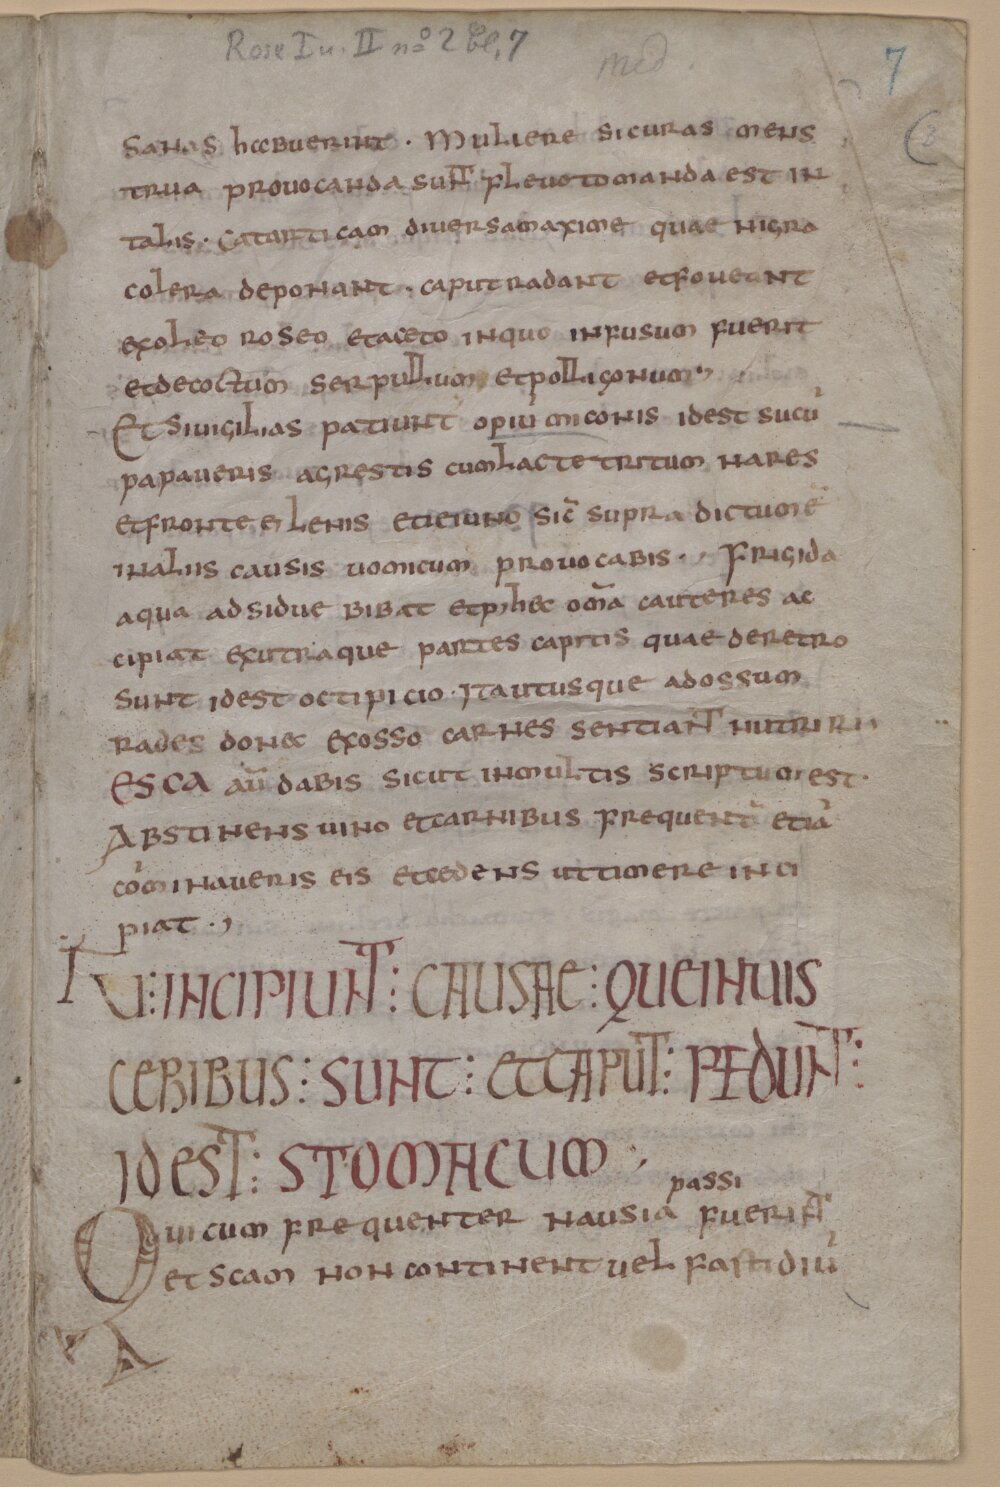 Rose Tu. II no 2 bl. 7
med.
7
sanas habuerint · muliere si curas mens
trua provocanda sunt flevotomanda est in
talis · catarticam diversa maxime quae nigra
colera deponant · caput radant et foveant
ex oleo roseo et aceto in quo infusum fuerit
et decoctum serpullium et polligonum
Et si vigilias patiunt opiū miconis id est sucū
papaveris agrestis cum lacte tritum nares
et fronte lenis et ieiuno sic̄ supra dictum ē
in aliis causis vomicum provocabis · Frigida
aqua adsidue bibat et p hec om̄a cauteres ac
cipiat ex utraque partes capitis quae de retro
sunt id est octipicio · ita ut usque ad ossum
rades donec ex osso carnes sentiant nutriri
ESCA aū dabis sicut in multis scriptum est ·
Abstinens vino et carnibus frequent̄ etiā
cōminaveris eis et cedens ut timere inci
piat ·,
INCIPIUNT : CAUSAE : QUE IN UIS
CERIBUS : SUNT : ET CAPUT : PEDUNT :
ID EST : STOMACUM
passi
Qui cum frequenter nausia fuerint
et scam non continent vel fastidiū
A